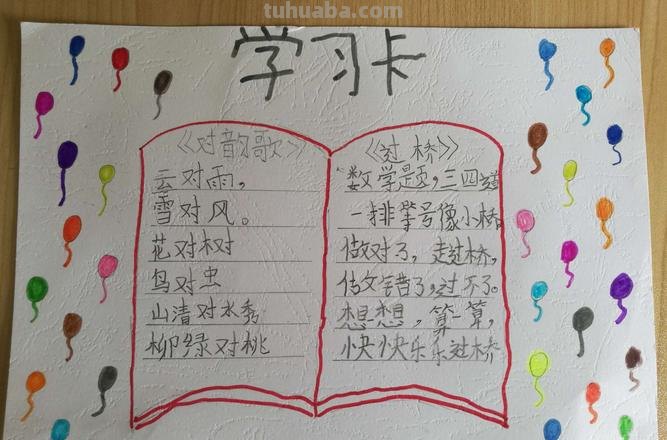 tuhuaba.com
学习卡
《对韵歌》
云对雨，
雪对风。
花对树
鸟对虫
山清对水秀
柳绿对桃
《过桥》
数学题，三四道
一排等号像小桥
做对了，走过桥，
做错了，过不了。
想想，算算，
快快乐乐过桥